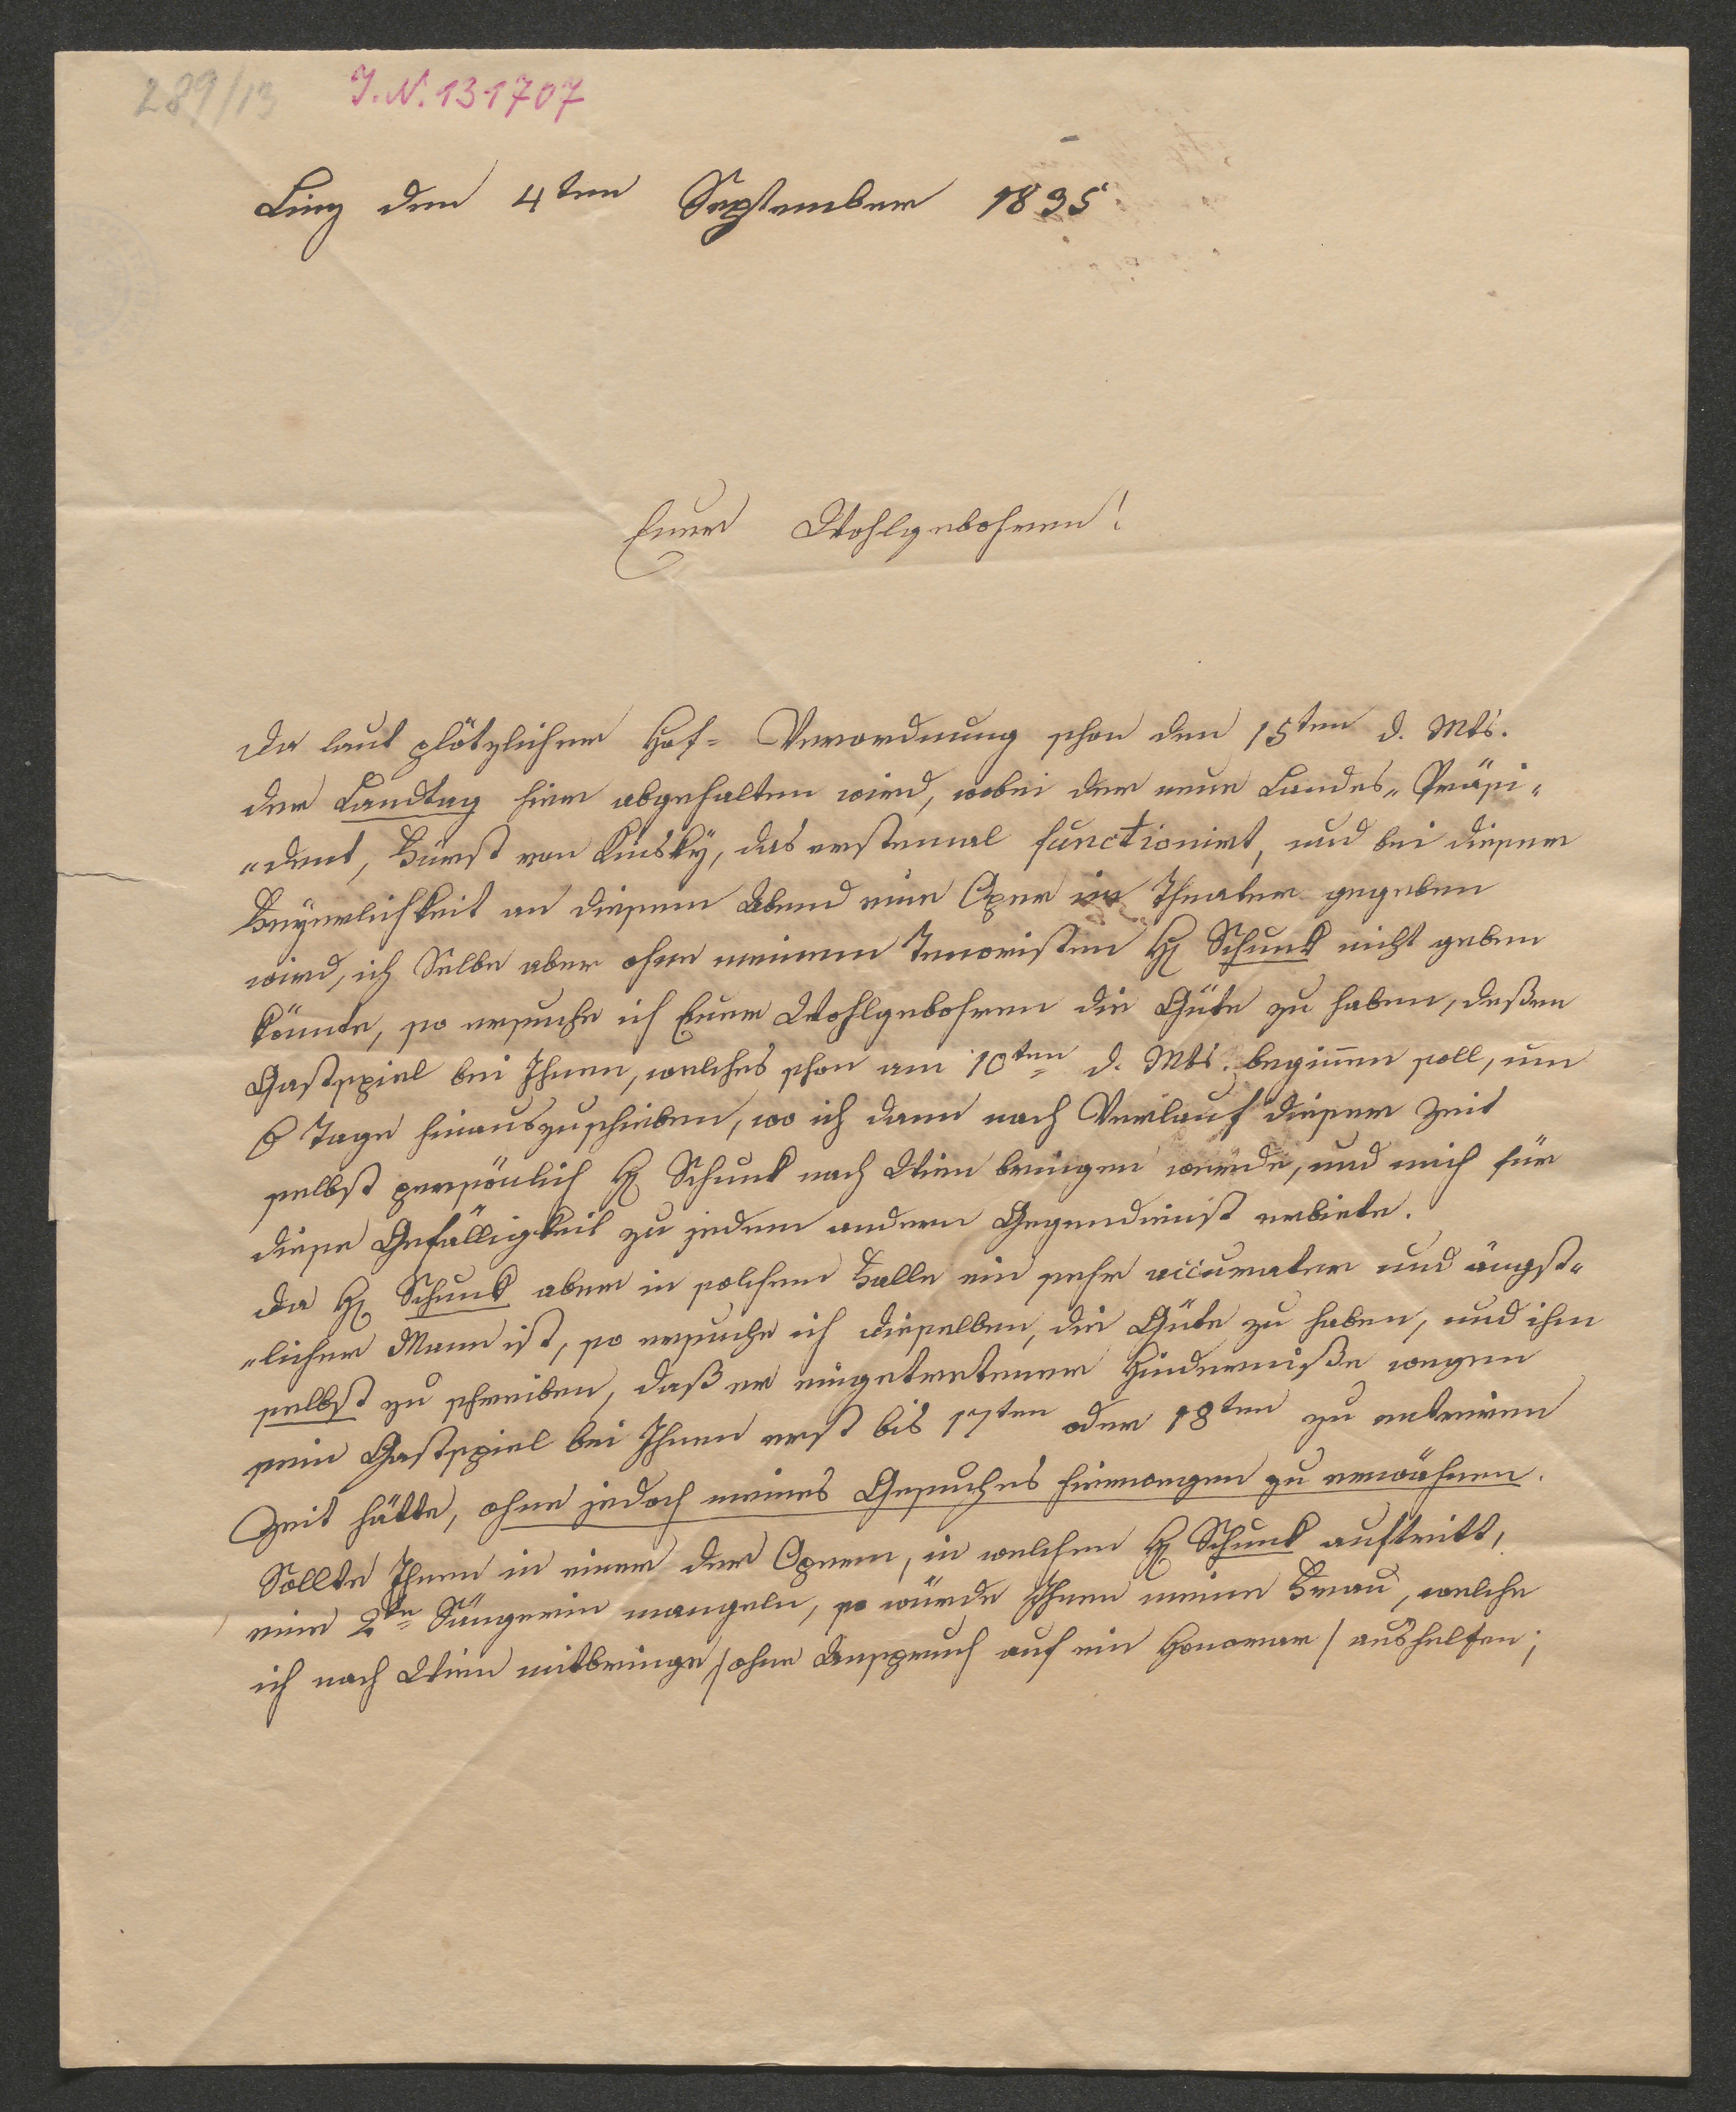 289/13
I.N. 131707
Linz den 4ten September 1835
Euer Wohlgebohren!
Da laut plötzlicher Hof- Verordnung schon den 15ten d. Mts.
der Landtag hier abgehalten wird, wobei der neue Landes„ Präsi„
„dent, Fürst von Kinsky, das erstemal functionirt, und bei dieser
Feyerlichkeit an diesem Abend eine Oper im Theater gegeben
wird, ich Selbe aber ohne meinen Tenoristen H Schunk nicht geben
könnte, so ersuche ich Euer Wohlgebohren die Güte zu haben, deßen
Gastspiel bei Ihnen, welches schon am 10ten d. Mts. begin̄en soll, um
6 Tage hinauszuschieben, wo ich dann nach Verlauf dieser Zeit
selbst persönlich H Schunk nach Wien bringen würde, und mich für
diese Gefälligkeit zu jedem andern Gegendienst erbiete.
Da H Schunk aber in solchem Falle ein sehr accurater und ängst„
„licher Mann ist, so ersuche ich dieselben, die Güte zu haben, und ihm
selbst zu schreiben, daß er eingetretener Hinderniße wegen
sein Gastspiel bei Ihnen erst bis 17ten oder 18ten zu entriren
Zeit hätte, ohne jedoch meines Gesuches hierwegen zu erwähnen.
Sollte Ihnen in einer der Opern, in welchen H Schunk auftritt,
eine 2te Sängerin mangeln, so würde Ihnen meine Frau, welche
ich nach Wien mitbringe /ohne Anspruch auf ein Honorar / aushelfen;